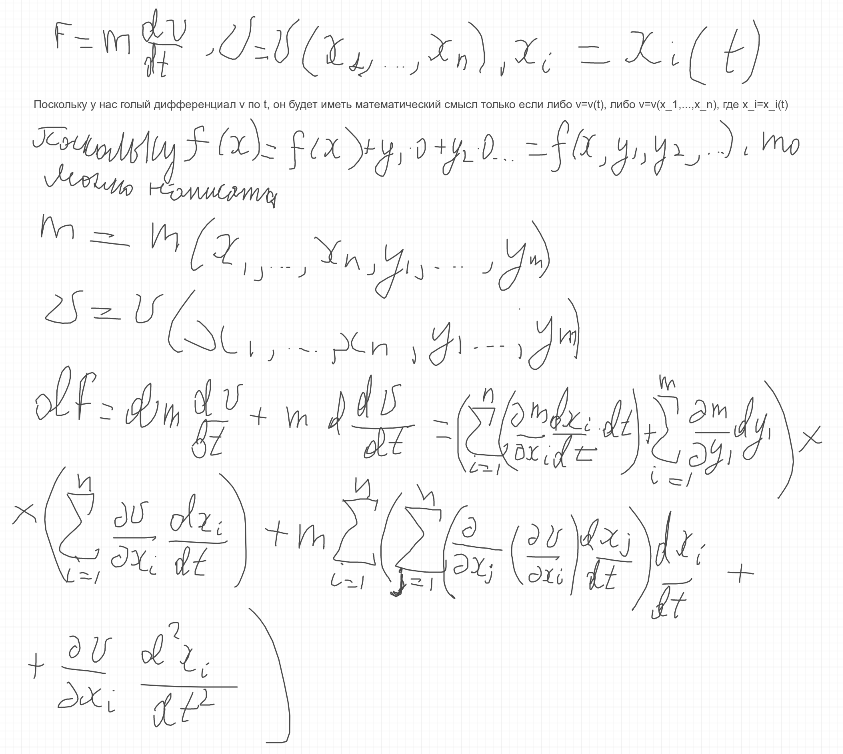 F = m dv/dt , v = v(x_1, ..., x_n), x_i = x_i(t)
Поскольку у нас голый дифференциал v по t, он будет иметь математический смысл только если либо v=v(t), либо v=v(x_1,...,x_n), где x_i=x_i(t)
Поскольку f(x) = f(x) + y_1·0 + y_2·0... = f(x, y_1, y_2, ...), то
можно написать
m = m(x_1, ..., x_n, y_1, ..., y_m)
v = v(x_1, ..., x_n, y_1 ..., y_m)
dF = dm dv/dt + m d dv/dt = (∑_{i=1}^{n} (∂m/∂x_i dx_i/dt · dt) + ∑_{i=1}^{m} ∂m/∂y_1 dy_1) ×
× (∑_{i=1}^{n} ∂v/∂x_i dx_i/dt) + m ∑_{i=1}^{n} (∑_{j=1}^{n} (∂/∂x_j (∂v/∂x_i) dx_j/dt) dx_i/dt +
+ ∂v/∂x_i d²x_i/dt²)